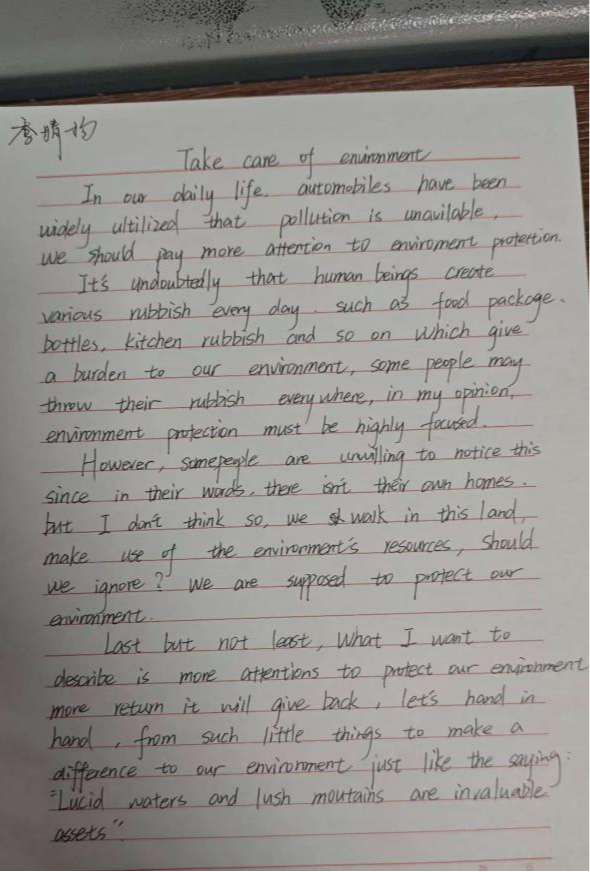 李晴均
Take care of environment
In our daily life. automobiles have been
widely ultilized that pollution is unavilable,
we should pay more attention to enviroment protection.
It's undoubtedly that human beings create
various rubbish every day. such as food package.
bottles, kitchen rubbish and so on which give
a burden to our environment, some people may
throw their rubbish everywhere, in my opinion,
environment protection must be highly focused.
However, somepeople are unwilling to notice this
since in their words, there isn't their own homes.
but I don't think so, we walk in this land,
make use of the environment's resources, should
we ignore? we are supposed to protect our
environment.
Last but not least, what I want to
describe is more attentions to protect our environment
more return it will give back, let's hand in
hand, from such little things to make a
difference to our environment just like the saying:
"Lucid waters and lush moutains are invaluable
assets".